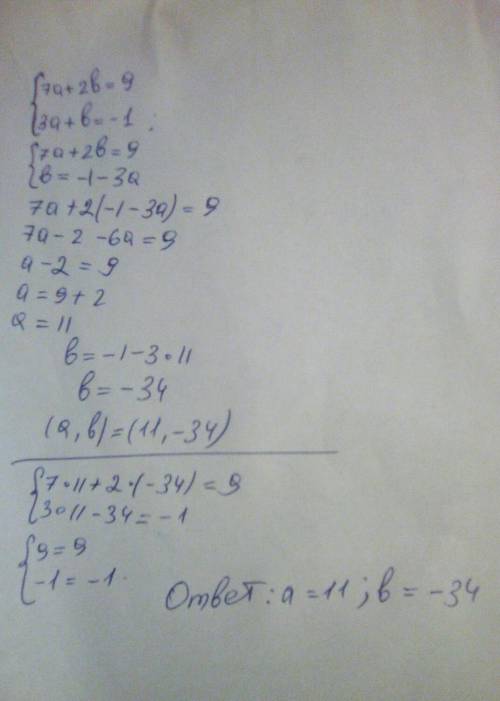 {7a+2b=9
{3a+b=-1;
{7a+2b=9
{b=-1-3a
7a+2(-1-3a)=9
7a-2-6a=9
a-2=9
a=9+2
a=11
b=-1-3•11
b=-34
(a,b)=(11,-34)
{7•11+2•(-34)=9
{3•11-34=-1
{9=9
{-1=-1.
Ответ: a=11; b=-34